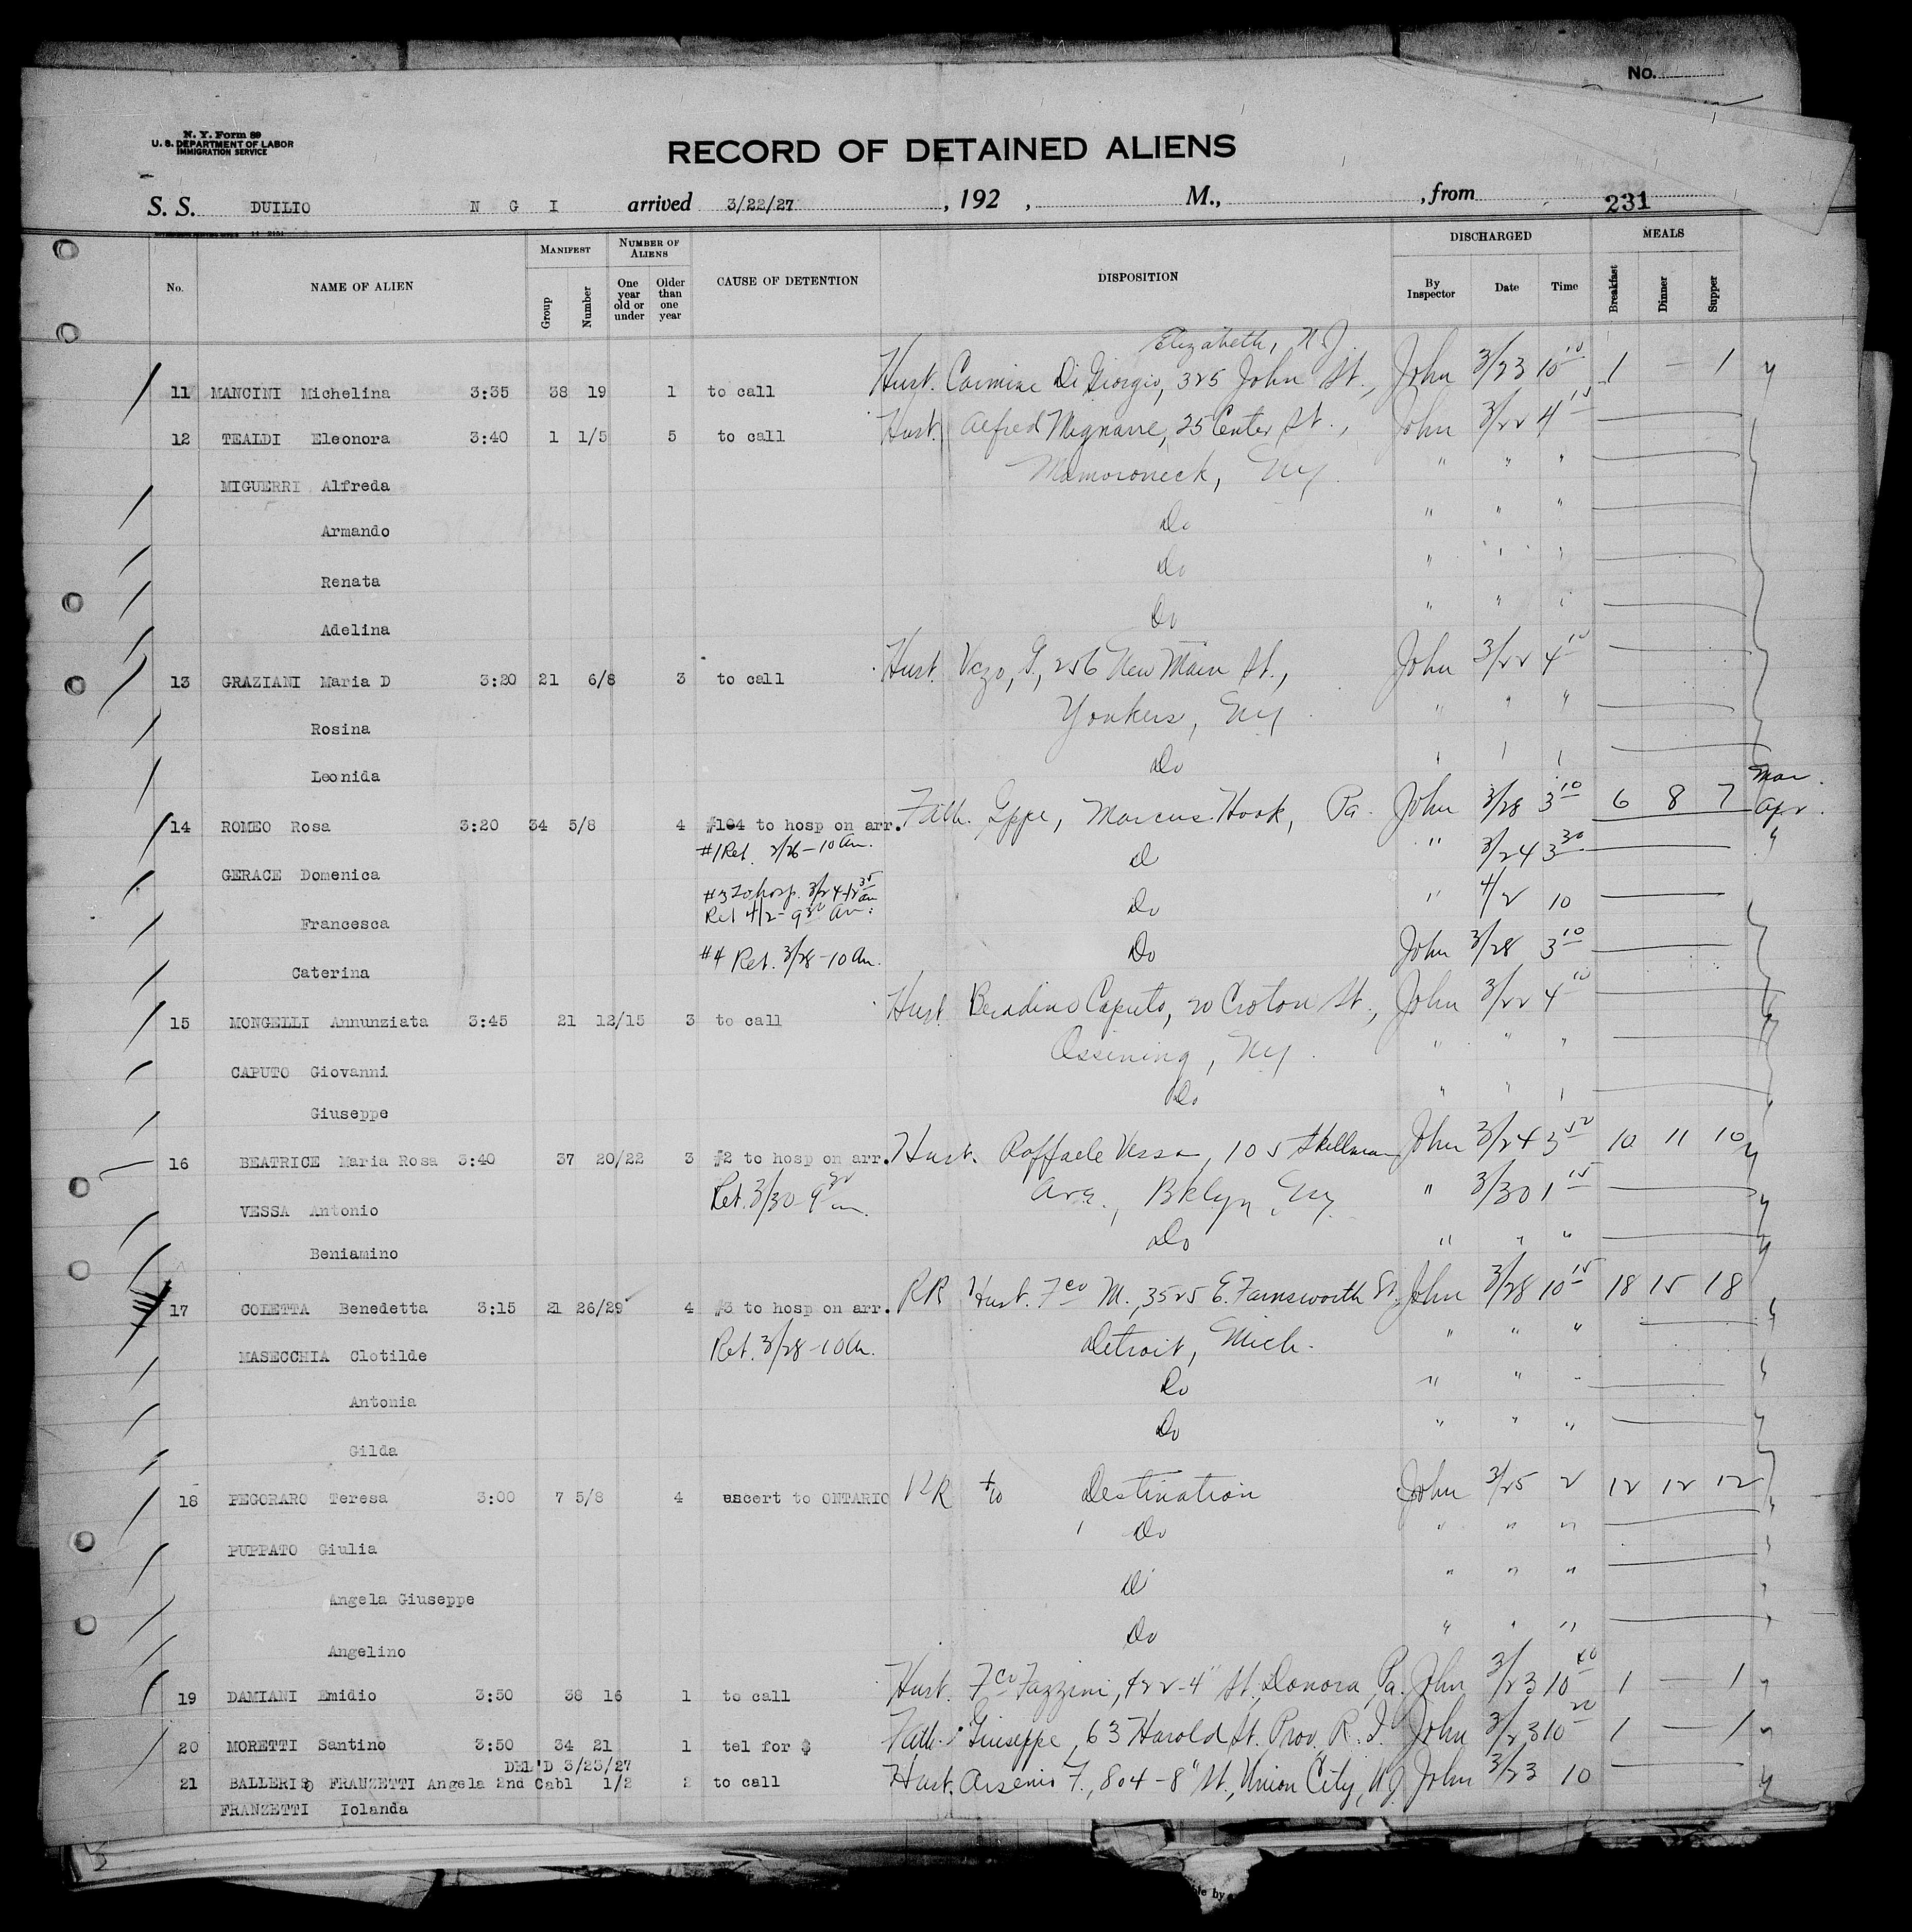 No.
N. Y. Form 89
U. S. DEPARTMENT OF LABOR
IMMIGRATION SERVICE
RECORD OF DETAINED ALIENS
S. S. DUILIO N G I arrived 3/22/27, 192 , M., , from 231
No. NAME OF ALIEN MANIFEST Group Number NUMBER OF ALIENS One year old or under Older than one year CAUSE OF DETENTION DISPOSITION DISCHARGED By Inspector Date Time MEALS Breakfast Dinner Supper
Elizabeth, N.J.
11 MANCINI Michelina 3:35 38 19 1 to call Husb. Carmine Di Giorgio, 325 John St., John 3/23 10 10 1 — 1
12 TEALDI Eleonora 3:40 1 1/5 5 to call Husb. Alfred 25 Center St., John 3/22 4 15
MIGUERRI Alfreda Mamoroneck, NY " " "
Armando Do " " "
Renata Do " " "
Adelina Do " " "
13 GRAZIANI Maria D 3:20 21 6/8 3 to call Husb. G, 256 New Main St., John 3/22 4 10
Rosina Yonkers, NY " " "
Leonida Do " " "
14 ROMEO Rosa 3:20 34 5/8 4 #104 to hosp on arr. Fath. Gppe, Marcus Hook, Pa. John 3/28 3 10 6 8 7 Mar. Apr.
#1 Ret. 3/26 - 10 am.
GERACE Domenica Do " 3/24 3 30 "
#3 To hosp. 3/24 - 12 35 am
Ret 4/2 - 9 30 am.
Francesca Do " 4/2 10
Caterina #4 Ret. 3/28 - 10 am. Do John 3/28 3 10
15 MONGELLI Annunziata 3:45 21 12/15 3 to call Husb. Beradino Caputo, 20 Croton St., John 3/22 4 10
CAPUTO Giovanni Ossining, NY. " " "
Giuseppe Do " " "
16 BEATRICE Maria Rosa 3:40 37 20/22 3 #2 to hosp on arr. Husb. Raffaele Vessa, 105 Skillman John 3/24 3 50 10 11 10
VESSA Antonio Ret. 3/30 - 9 30 am. Ave., Bklyn, NY " 3/30 1 15
Beniamino Do " " "
17 COLETTA Benedetta 3:15 21 26/29 4 #3 to hosp on arr. RR Husb. Fco M., 3525 E. Farnsworth St. John 3/28 10 15 18 15 18
MASECCHIA Clotilde Ret. 3/28 - 10 am. Detroit, Mich. " " "
Antonia Do " " "
Gilda Do " " "
18 PEGORARO Teresa 3:00 7 5/8 4 escort to ONTARIO RR to Destination John 3/25 2 12 12 12
PUPPATO Giulia Do " " "
Angela Giuseppe Do " " "
Angelino Do " " "
19 DAMIANI Emidio 3:50 38 16 1 to call Husb. Fco Fazzini, 422 - 4" St., Donora, Pa. John 3/23 10 40 1 — 1
20 MORETTI Santino 3:50 34 21 1 tel for $ Fath. Giuseppe, 63 Harold St. Prov. R. I. John 3/23 10 20 1 — 1
DEL'D 3/23/27
21 BALLERIO FRANZETTI Angela 2nd Cabl 1/2 2 to call Husb. Arsenio F., 804 - 8" St., Union City, NJ John 3/23 10
FRANZETTI Iolanda